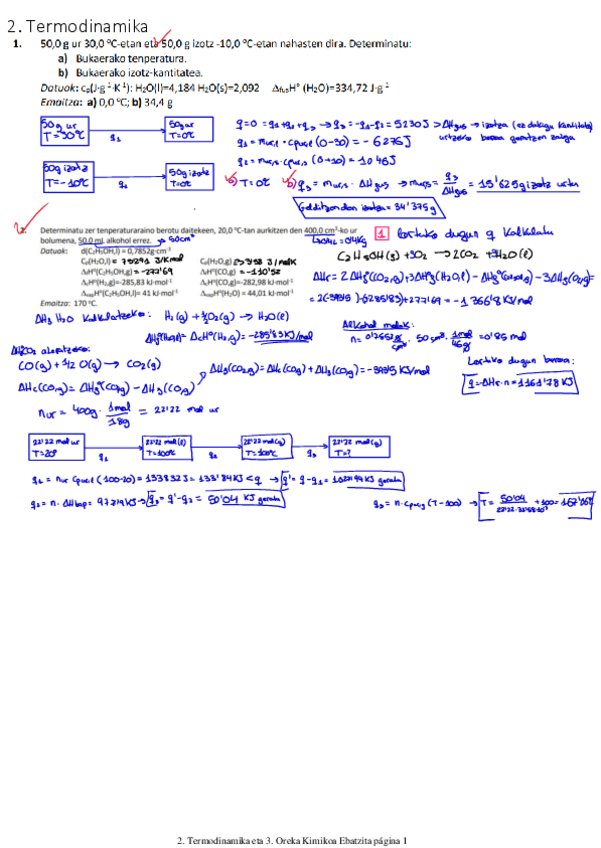 2. Termodinamika
1. 50,0 g ur 30,0 ºC-etan eta 50,0 g izotz -10,0 ºC-etan nahasten dira. Determinatu:
a) Bukaerako tenperatura.
b) Bukaerako izotz-kantitatea.
Datuak: cₚ(J·g⁻¹·K⁻¹): H2O(l)=4,184 H2O(s)=2,092 ΔfusH° (H2O)=334,72 J·g⁻¹
Emaitza: a) 0,0 ºC; b) 34,4 g
50g ur T=30ºC
q₁
50g ur T=0ºC
50g izotz T=-10ºC
q₂
50g izotz T=0ºC
q=0 = q₁+q₂+q₃ → q₃=-q₁-q₂= 5230J > ΔHfus → izotza (ez dakigu kantitatea)
urtzeko beroa
q₁ = mur,l · cpur,l (0-30) = -6276J
q₂ = mur,s · cpur,s (0+10) = 1046J
a) T=0ºC b) q₃ = mur,s · ΔHfus → murs = q₃/ΔHfus = 15'625g izotz urtu
Geldituko den izotza = 34'375g
2. Determinatu zer tenperaturaraino berotu daitekeen, 20,0 ºC-tan aurkitzen den 400,0 cm³-ko ur
bolumena, 50,0 mL alkohol errez. → 50cm³
Datuak: d(C2H5OH,l) = 0,7852g·cm⁻³
Cₚ(H2O,l) = 75'291 J/Kmol Cₚ(H2O,g)
ΔfH°(C2H5OH,g) = -277'69 ΔfH°(CO,g) = -110'52
ΔcH°(H2,g)=-285,83 kJ·mol⁻¹ ΔcH°(CO,g)=-282,98 kJ·mol⁻¹
ΔvapH°(C2H5OH,l)= 41 kJ·mol⁻¹ ΔvapH°(H2O) = 44,01 kJ·mol⁻¹
Emaitza: 170 ºC.
1 Lortuko dugun q kalkulatu
C₂H₅OH(g) +3O₂ → 2CO₂ +3H₂O(l)
ΔHr = 2ΔHf(CO₂,g)+3ΔHf(H₂O,l) - ΔHf(etanol,g) - 3ΔHf(O₂,g)=
= 2(-393'5)+3(-285'83)+277'69 = -1366'8 KJ/mol
ΔHf H₂O kalkulatzeko: H₂(g) + ½O₂(g) → H₂O(l)
ΔHf(H₂O,l) = ΔcH°(H₂,g) = -285'83 KJ/mol
Alkohol molak:
n= 0'7852 g/cm³ · 50cm³ · 1mol/46g = 0'85 mol
ΔHCO₂ ateratzeko:
CO(g) + 1/2 O₂(g) → CO₂(g)
ΔHf(CO₂,g) = ΔHc(CO,g) + ΔHf(CO,g) = -393'5 KJ/mol
Lortuko dugun beroa:
q=ΔHr·n = 1161'78 KJ
ΔHc(CO,g) = ΔHf(CO₂,g) - ΔHf(CO,g)
nur = 400g · 1mol/18g = 22'22 mol ur
22'22 mol ur T=20º
q₁
22'22 mol(l) T=100ºC
q₂
22'22 mol(g) T=100ºC
q₃
22'22 mol(g) T=?
q₁ = nur Cpur,l (100-20) = 133832J = 133'84KJ < q → q' = q-q₁ = 1027'94KJ geratu
q₂ = n · ΔHvap = → q₃ = q'-q₂ = 50'04 KJ geratu
q₃ = n·cpur,g (T-100) →
2. Termodinamika eta 3. Oreka Kimikoa Ebatzita página 1